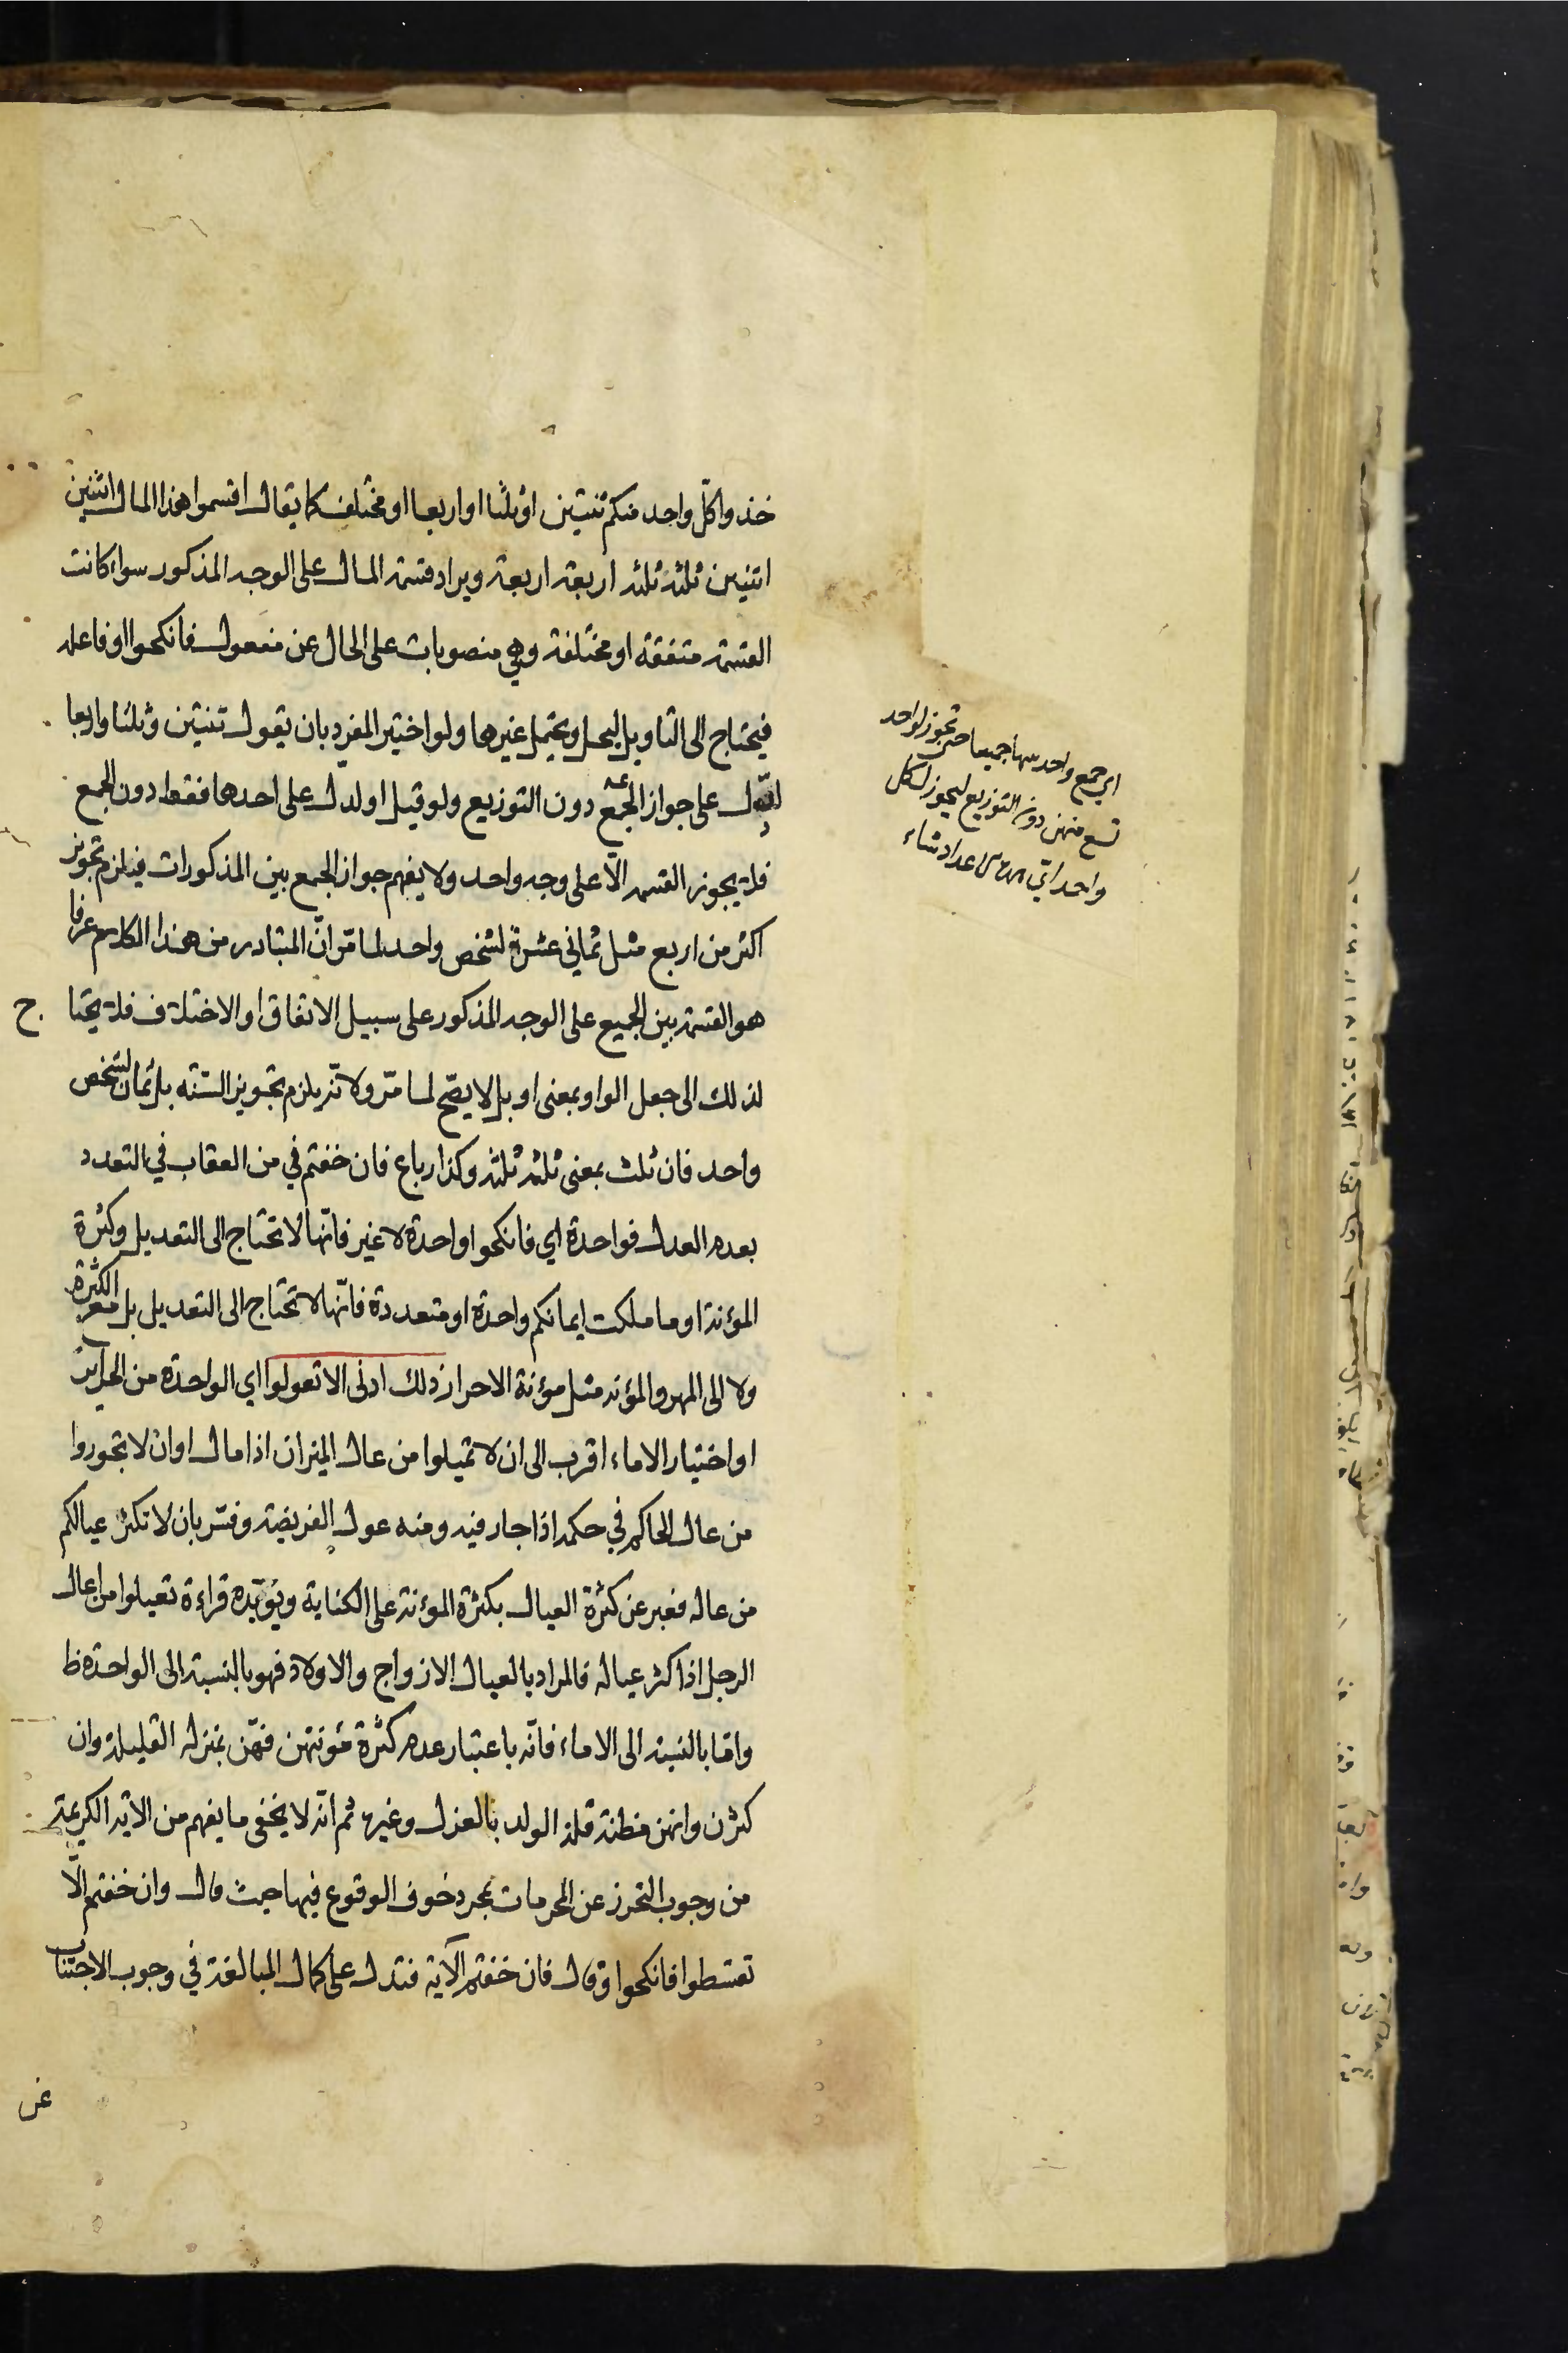 خذوا كلّ واحد منكم ثنتين او ثلثا او اربعا او مختلف كما يقال اقسموا هذا المال اثنين
اثنين ثلثة ثلثة اربعة اربعة ويراد قسمة المال على الوجه المذكور سواء كانت
القسمة متفقة او مختلفة وهي منصوبات على الحال عن مفعول فانكحوا او فاعله
فيحتاج الى التاويل ليحل ويحتمل غيرها ولو اختير المفرد بان يقول ثنتين وثلثا واربعا
لدلّ على جواز الجمع دون التوزيع ولو قيل او لدل على احدها فقط دون الجمع
فلا يجوز القسمة الّا على وجه واحد ولا يفهم جواز الجمع بين المذكورات فيلزم تجويز
اكثر من اربع مثل ثماني عشرة لشخص واحد لما مّر انّ المتبادر من هذا الكلام عرفا
هو القسمة بين الجميع على الوجه المذكور على سبيل الاتفاق او الاختلاف فلا يحتا ج
لذلك الى جعل الواو بمعنى او بل لا يصّح لما مّر ولانّه يلزم تجويز الستّة بل ثمان لشخص
واحد فان ثلث بمعنى ثلثة ثلثة وكذا رباع فان خفتم في من العقاب في التعدد
بعدم العدل فواحدة اي فانكحوا واحدة لا غير فانّها لا تحتاج الى التعديل وكثرة
المؤنة او ما ملكت ايمانكم واحدة او متعددة فانّها لا تحتاج الى التعديل بل مع الكثرة
ولا الى المهر والمؤنة مثل مؤنة الاحرار ذلك ادنى الا تعولوا اي الواحدة من الحراير
او اختيار الاماء اقرب الى ان لا تميلوا من عال الميزان اذا مال او ان لا تجوروا
من عال الحاكم في حكمه اذا جار فيه ومنه عول الفريضة وفسّر بان لا تكثر عيالكم
من عاله فعبر عن كثرة العيال بكثرة المؤنة على الكناية ويؤيّده قراءة تعيلوا من اعال
الرجل اذا كثر عياله فالمراد بالعيال الازواج والاولاد فهو بالنسبة الى الواحدة ظ
وامّا بالنسبة الى الاماء فانّه باعتبار عدم كثرة مؤنتهن فهّن بمنزلة القليلة وان
كثرن وانهن مظنة قلة الولد بالعزل وغيره ثم انّه لا يخفى ما يفهم من الاية الكريمة
من وجوب التحرز عن المحرمات بمجرد خوف الوقوع فيها حيث قال وان خفتم الّا
تقسطوا فانكحوا وقال فان خفتم الآية فتدل على كمال المبالغة في وجوب الاجتناب
عن
اي جمع واحد منها جميعا حتى تجوز لواحد
تسع منهن دون التوزيع ليجوز لكل
واحد اي اعداد شاء